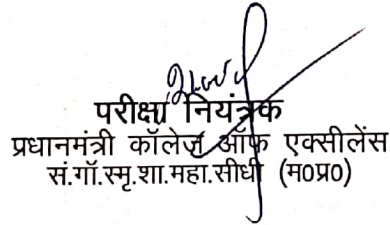 परीक्षा नियंत्रक
प्रधानमंत्री कॉलेज ऑफ एक्सीलेंस
सं.गॉ.स्मृ.शा.महा.सीधी (म0प्र0)